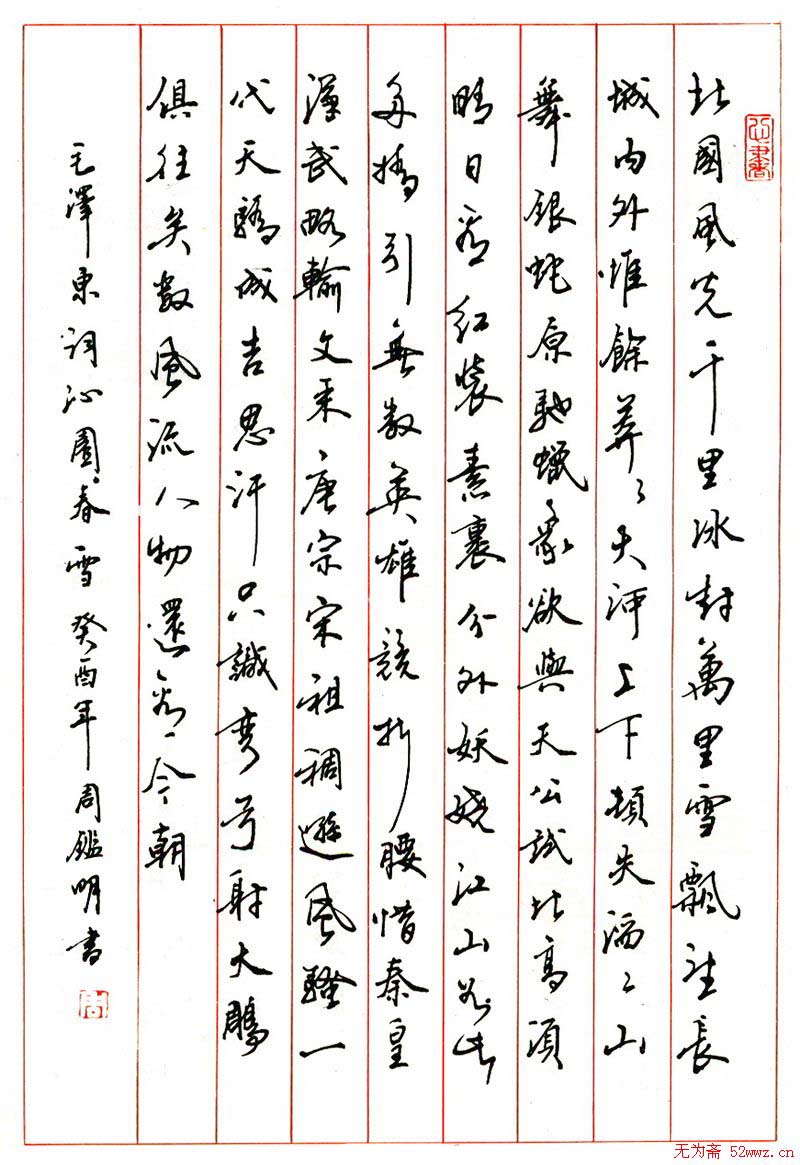 北國風光千里冰封萬里雪飄望長
城内外惟餘莽〻大河上下頓失滔〻山
舞銀蛇原馳蠟象欲與天公試比高須
晴日看紅裝素裹分外妖嬈江山如此
多嬌引無數英雄競折腰惜秦皇
漢武略輸文采唐宗宋祖稍遜風騷一
代天驕成吉思汗只識彎弓射大鵰
俱往矣數風流人物還看今朝
毛澤東詞沁園春雪癸酉年周鑑明書
周
无为斋 52wwz.cn